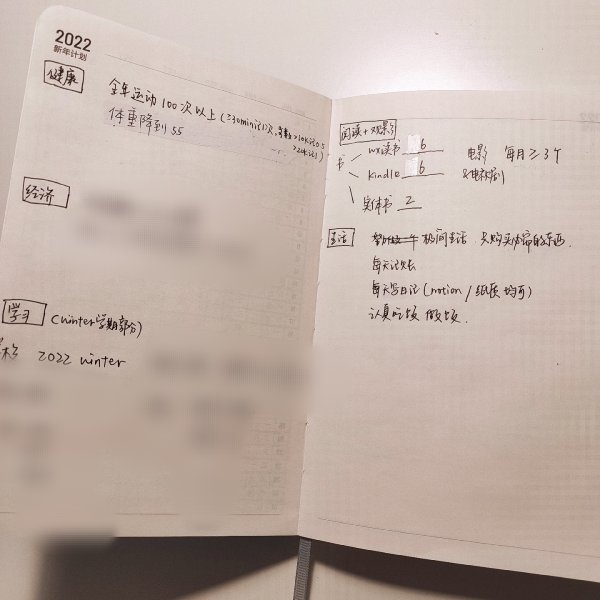 2022
新年计划
健康
全年运动100次以上(≥30min记1次,步数>10k记0.5
>20k记1)
体重降到55
经济
学习 (winter学期部分)
2022 winter
阅读+观影
书
wx读书 6
kindle 6
实体书 2
电影 每月≥3个
&电视剧
生活
极简生活,只购买必需的东西.
每天记账
每天写日记(notion/纸质均可)
认真吃饭 做饭.